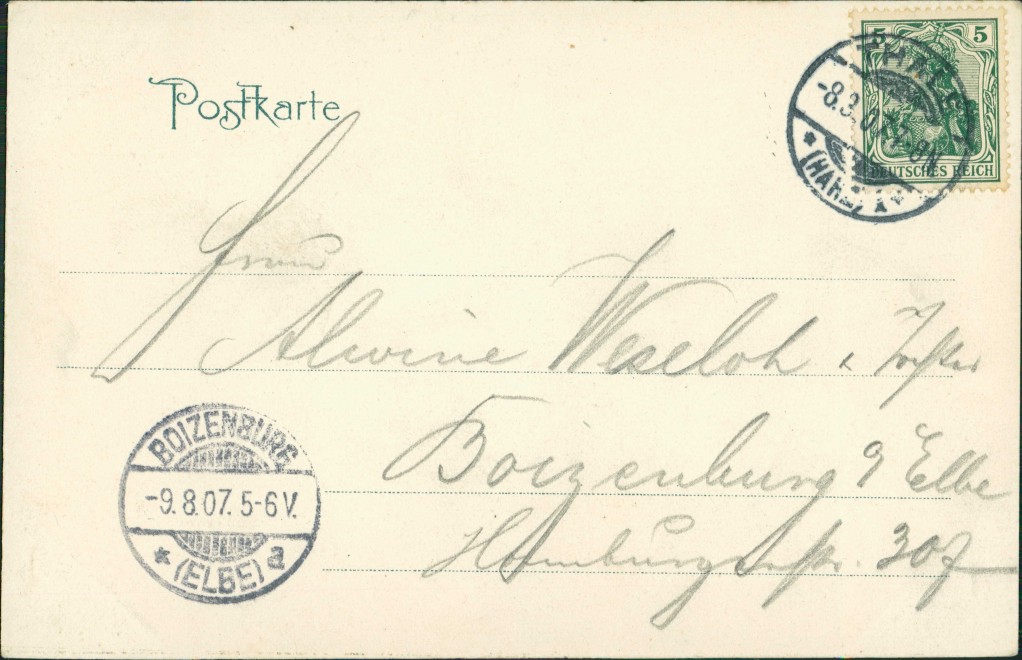 Postkarte
5 5
DEUTSCHES REICH
THALE
-8.8.07. 7-8N
* (HARZ) *
Frau
Alwine Weseloh
Boizenburg a/ Elbe
Hamburgerstr. 307
BOIZENBURG
-9.8.07. 5-6V.
* (ELBE) a